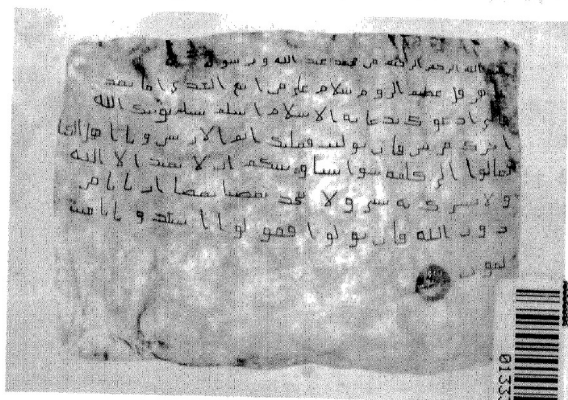 بسم الله الرحمن الرحيم من محمد عبد الله ورسوله
هرقل عظيم الروم سلام على من اتبع الهدى اما بعد
فانى ادعوك بدعاية الاسلام اسلم تسلم يوتيك الله
اجرك مرتين فان توليت فعليك اثم الاريسين ويا اهل الكتا
تعالوا الى كلمة سوا بيننا وبينكم ان لا نعبد الا الله
ولا نشرك به شيا ولا يتخذ بعضنا بعضا اربابا من
دون الله فان تولوا فقولوا اشهدوا بانا مسلمون
0133